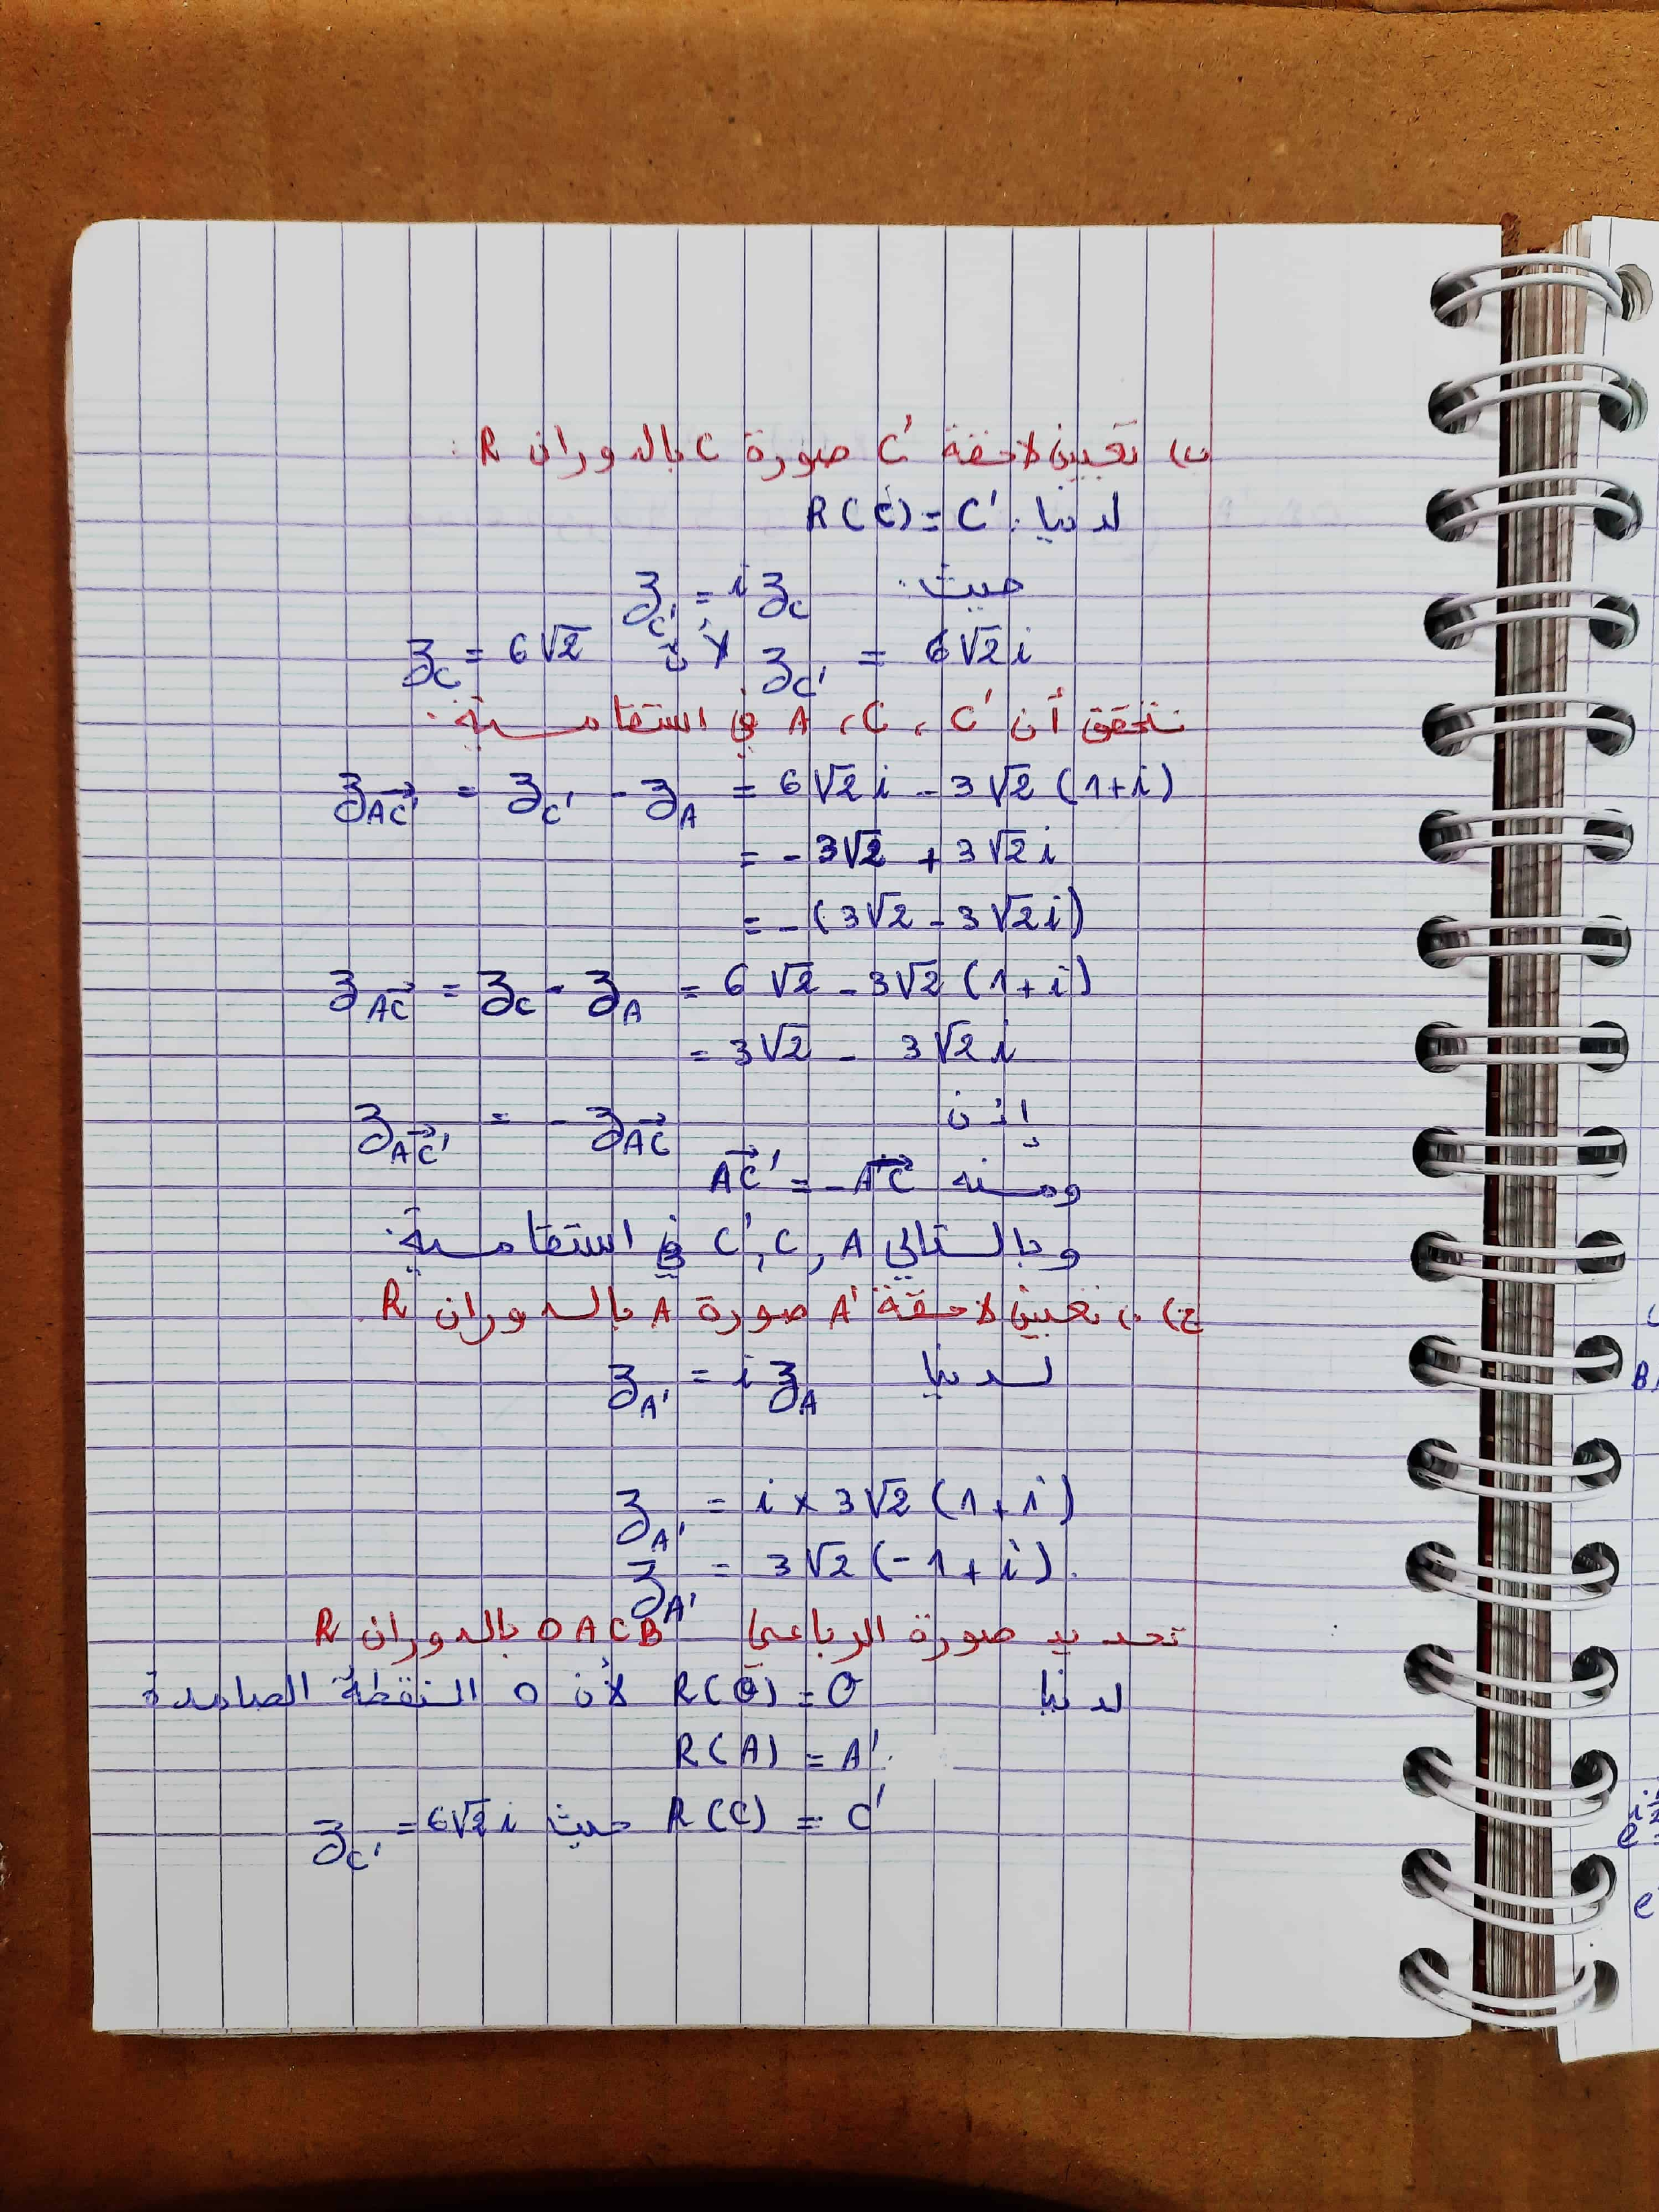 ب) تعيين لاحقة C' صورة C بالدوران R :
لدينا : R(C) = C'
حيث : z_C' = i z_C
z_C' = 6√2 i لأن z_C = 6√2
نتحقق أن C' ، C ، A في استقامية :
z_AC'→ = z_C' - z_A = 6√2 i - 3√2 (1+i)
= - 3√2 + 3√2 i
= - (3√2 - 3√2 i)
z_AC→ = z_C - z_A = 6√2 - 3√2 (1+i)
= 3√2 - 3√2 i
إذن z_AC'→ = - z_AC→
ومنه AC'→ = - AC→
وبالتالي A , C , C' في استقامية .
ج) • تعيين لاحقة A' صورة A بالدوران R
لدينا z_A' = i z_A
z_A' = i × 3√2 (1+i)
z_A' = 3√2 (-1+i) .
تحديد صورة الرباعي OACB بالدوران R
لدينا R(O) = O لأن O النقطة الصامدة
R(A) = A' .
R(C) = C' حيث z_C' = 6√2 i